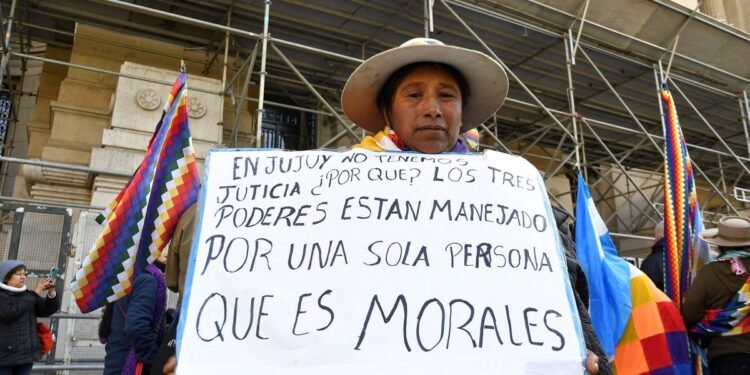 EN JUJUY NO TENEMOS
JUTICIA ¿POR QUE? LOS TRES
PODERES ESTAN MANEJADO
POR UNA SOLA PERSONA
QUE ES MORALES